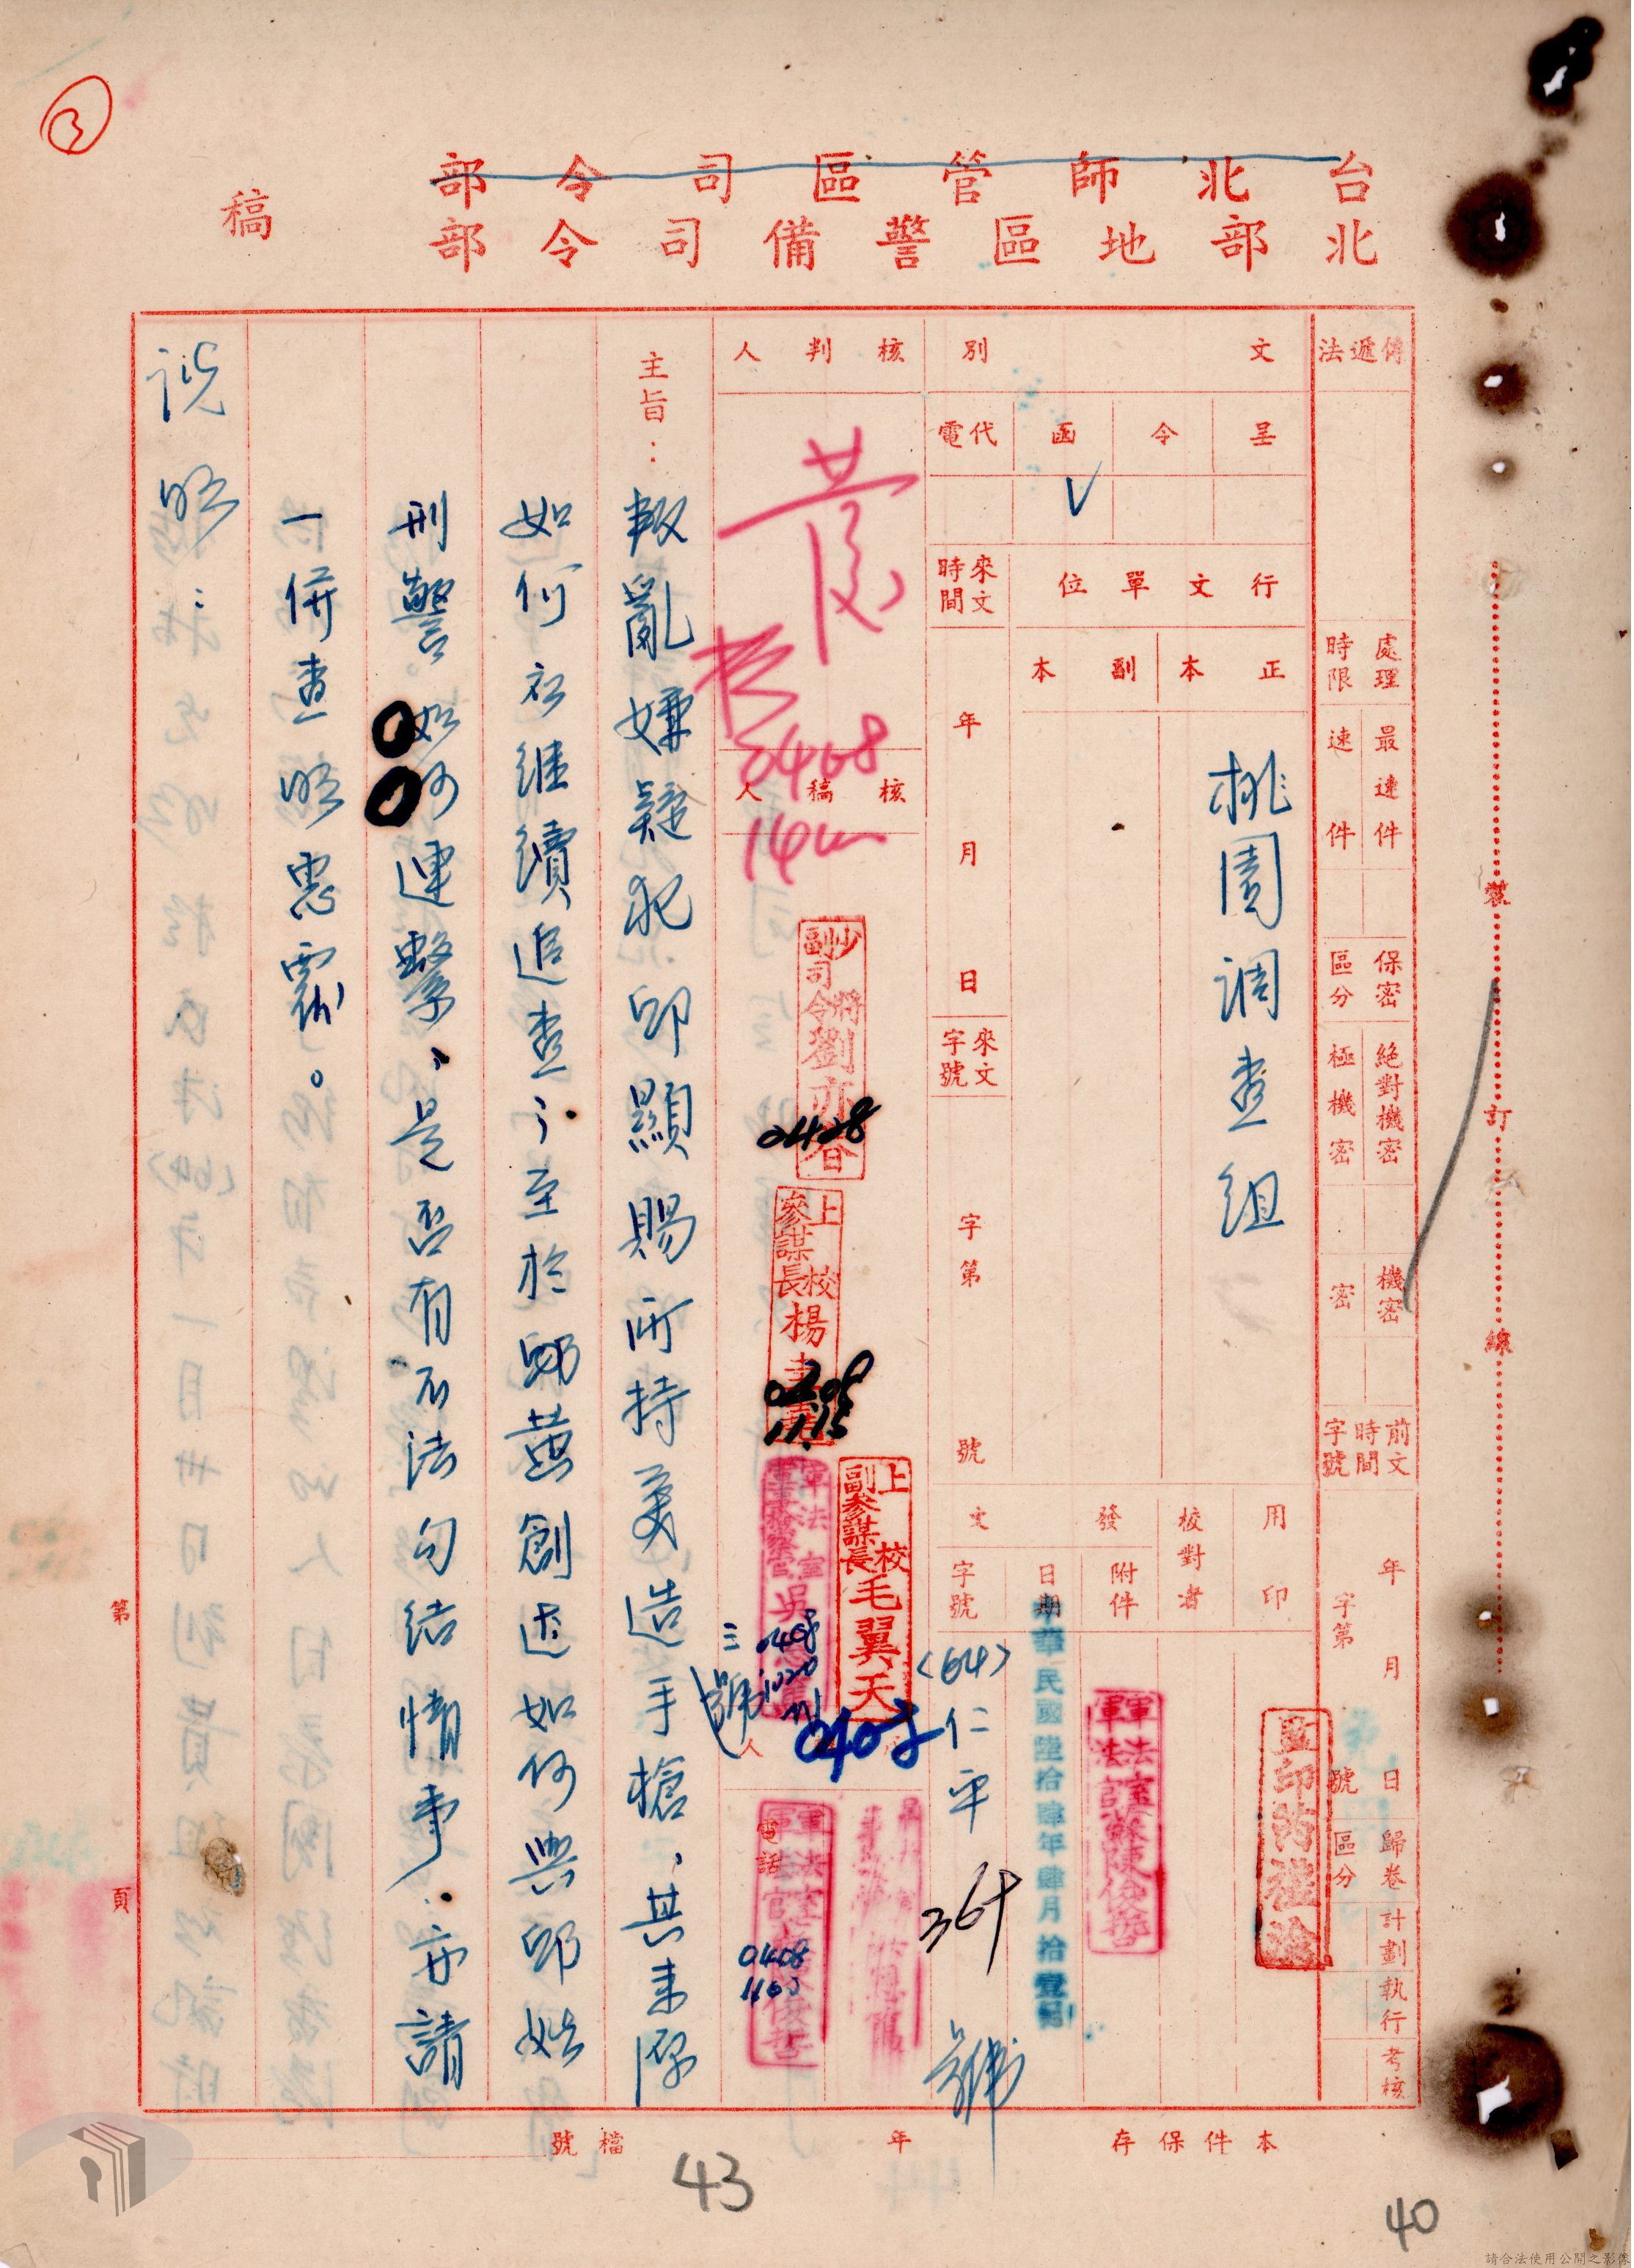 3
台北師管區司令部
北部地區警備司令部
稿
傳遞法
處理時限
最速件
速件
保密區分
絕對機密
極機密
機密
密
前文時間字號
年月日
字第號
歸卷區分
計劃
執行
考核
文別
呈
令
函
代電
V
行文單位
正本
副本
桃園調查組
來文時間
年月日
來文字號
字第號
用印
校對者
發文
附件
日期
字號
監印
軍法室
中華民國陸拾肆年肆月拾壹
(64)仁平
字第
號
核判人
核稿人
黃
0408
少將副司令劉亦
0408
上校參謀長楊
0408
1115
上校副參謀長毛翼天
0408
軍法室
吳
0408
1020
電話
軍法室
軍法官
0408
1100
主旨:
叛亂嫌疑犯邱顯賜所持美造手槍、其來源
如何祈繼續追查;至於鄒黃創述如何與邱姓
刑警如何連繫、是否有不法勾結情事:亦請
一併查明惠覆。
說明:
第
頁
檔號
年
本件保存
43
40
裝
訂
線
請合法使用公開之影像